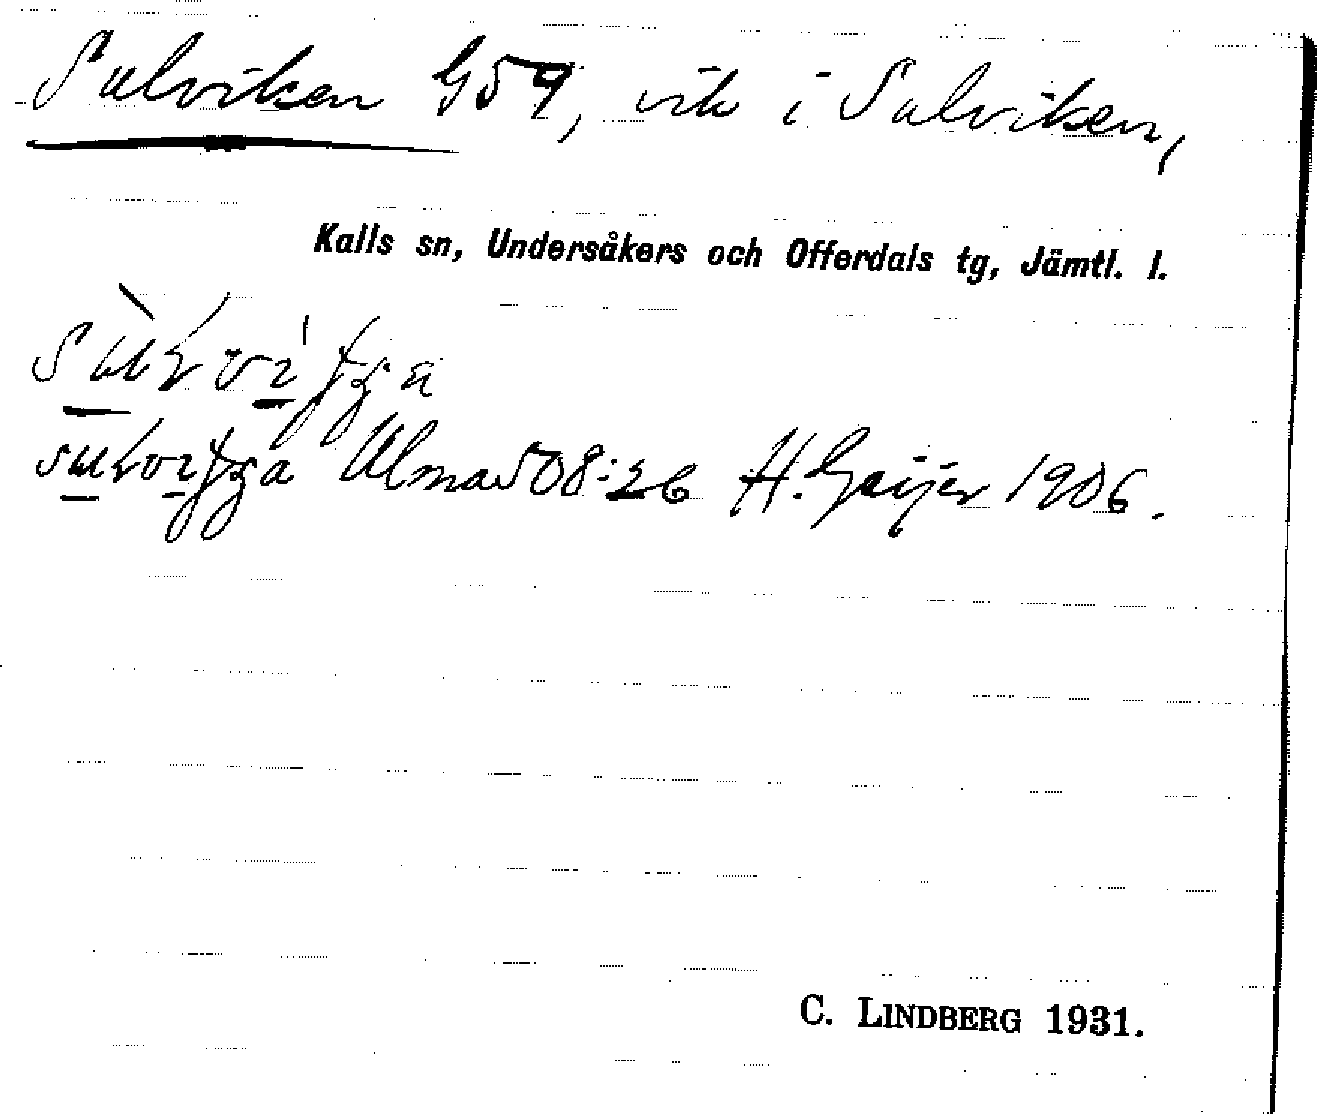 Sulviken G59, vik i Sulviken,
Kalls sn, Undersåkers och Offerdals tg, Jämtl. l.
Ulma 508:26 H. Geijer 1906.
C. LINDBERG 1931.